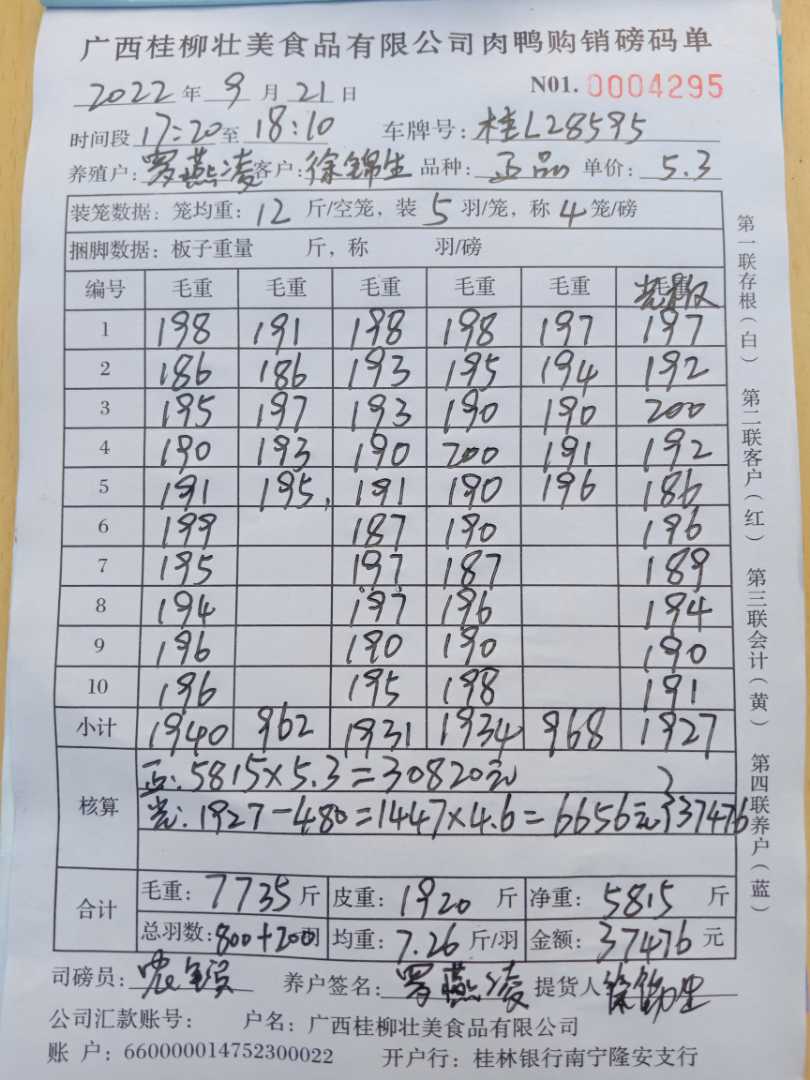 广西桂柳壮美食品有限公司肉鸭购销磅码单
2022年9月21日 NO1. 0004295
时间段17:20至18:10 车牌号:桂L28595
养殖户:罗燕凌 客户:徐锦生 品种:正品 单价:5.3
装笼数据:笼均重:12斤/空笼,装5羽/笼,称4笼/磅
捆脚数据:板子重量 斤,称 羽/磅
编号 毛重 毛重 毛重 毛重 毛重
1 198 191 198 198 197 197
2 186 186 193 195 194 192
3 195 197 193 190 190 200
4 190 193 190 200 191 192
5 191 195, 191 190 196 186
6 199 187 190 196
7 195 197 187 189
8 194 197 196 194
9 196 190 190 190
10 196 195 198 191
小计 1940 962 1931 1934 968 1927
核算
正:5815×5.3=30820元
光:1927-480=1447×4.6=6656元}37476
合计
毛重:7735斤 皮重:1920斤 净重:5815斤
总羽数:800+200 均重:7.26斤/羽 金额:37476元
司磅员: 养户签名:罗燕凌 提货人
公司汇款账号: 户名:广西桂柳壮美食品有限公司
账户:660000014752300022 开户行:桂林银行南宁隆安支行
第一联存根(白) 第二联客户(红) 第三联会计(黄) 第四联养户(蓝)